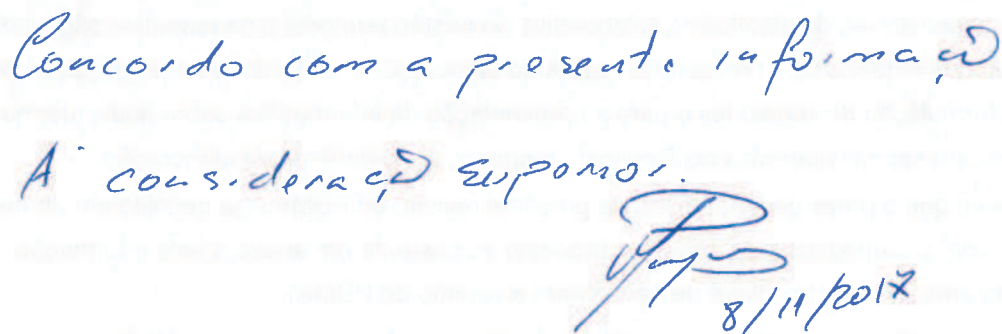 Concordo com a presente informação
À consideração superior.
8/11/2017